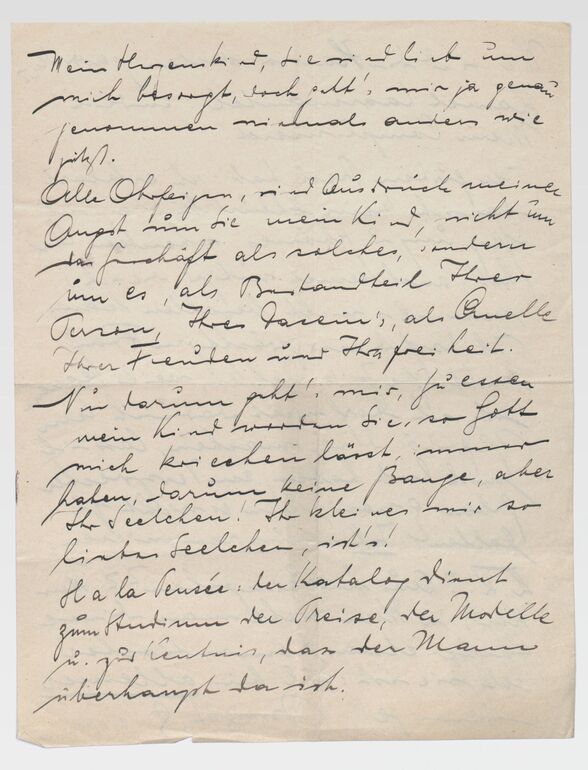 Mein Herzenskind, Sie sind lieb um
mich besorgt, doch geht's mir ja genau
genommen niemals anders wie
jetzt.
Alle Ohrfeigen, sind Ausdruck meiner
Angst um Sie mein Kind, nicht um
das Geschäft als solches, sondern
um es, als Bestandteil Ihrer
Person, Ihres Dasein's, als Quelle
Ihrer Freuden und Ihre freiheit.
Nur darum geht's mir, zu essen
mein Kind werden Sie, so Gott
mich kriechen lässt, immer
haben, darum keine Bange, aber
Ihr Seelchen! Ihr kleines mir so
liebes Seelchen, ist's!
H a la Pensée: der Katalog dient
zum Studium der Preise, der Modelle
u. zur Kentnis, dass der Mann
überhaupt da ist.